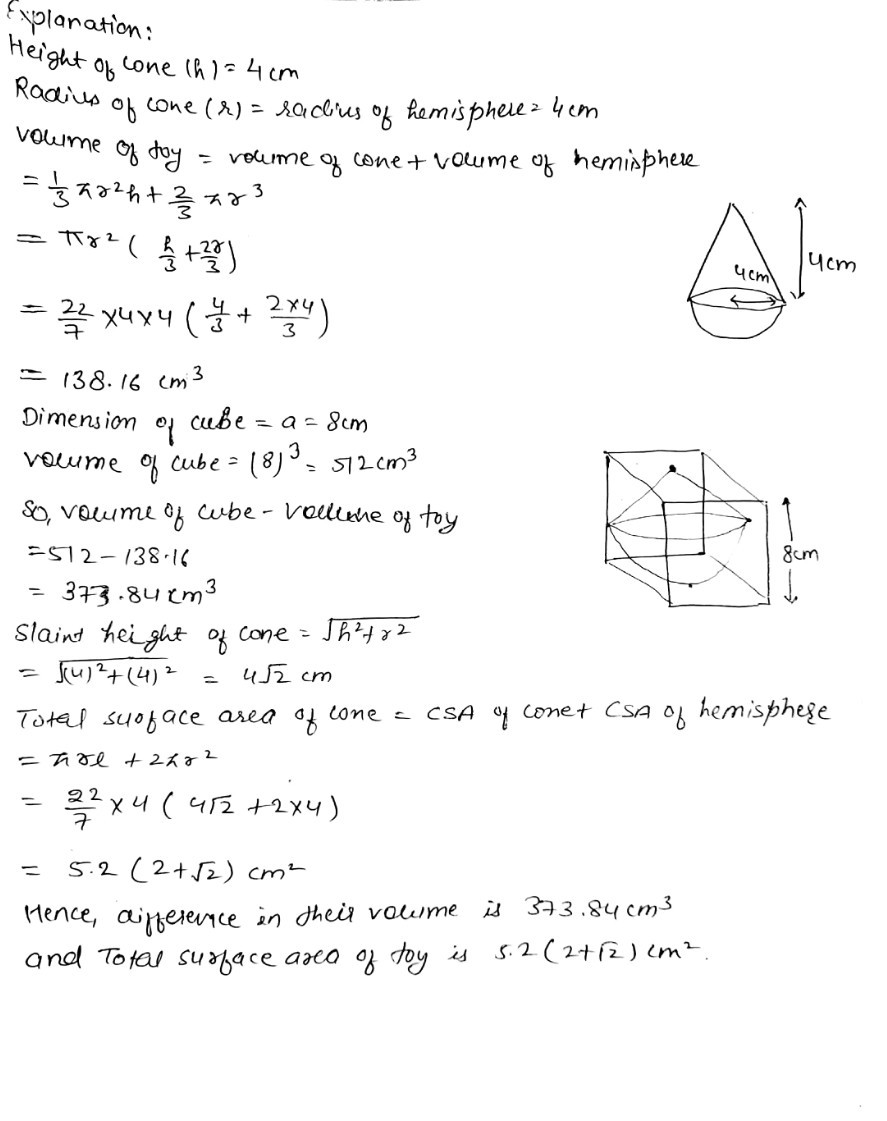 Explanation:
Height of cone (h) = 4 cm
Radius of cone (r) = radius of hemisphere = 4 cm
volume of toy = volume of cone + volume of hemisphere
= 1/3 πr²h + 2/3 πr³
= πr² ( h/3 + 2r/3 )
4cm
4cm
= 22/7 × 4 × 4 ( 4/3 + 2×4/3 )
= 138.16 cm³
Dimension of cube = a = 8cm
volume of cube = (8)³ = 512 cm³
So, volume of cube - volume of toy
= 512 - 138.16
8cm
= 373.84 cm³
Slaint height of cone = √h²+r²
= √(4)²+(4)² = 4√2 cm
Total surface area of cone = CSA of cone + CSA of hemisphere
= πrl + 2πr²
= 22/7 × 4 ( 4√2 + 2×4 )
= 5.2 (2+√2) cm²
Hence, difference in their volume is 373.84 cm³
and Total surface area of toy is 5.2 (2+√2) cm².